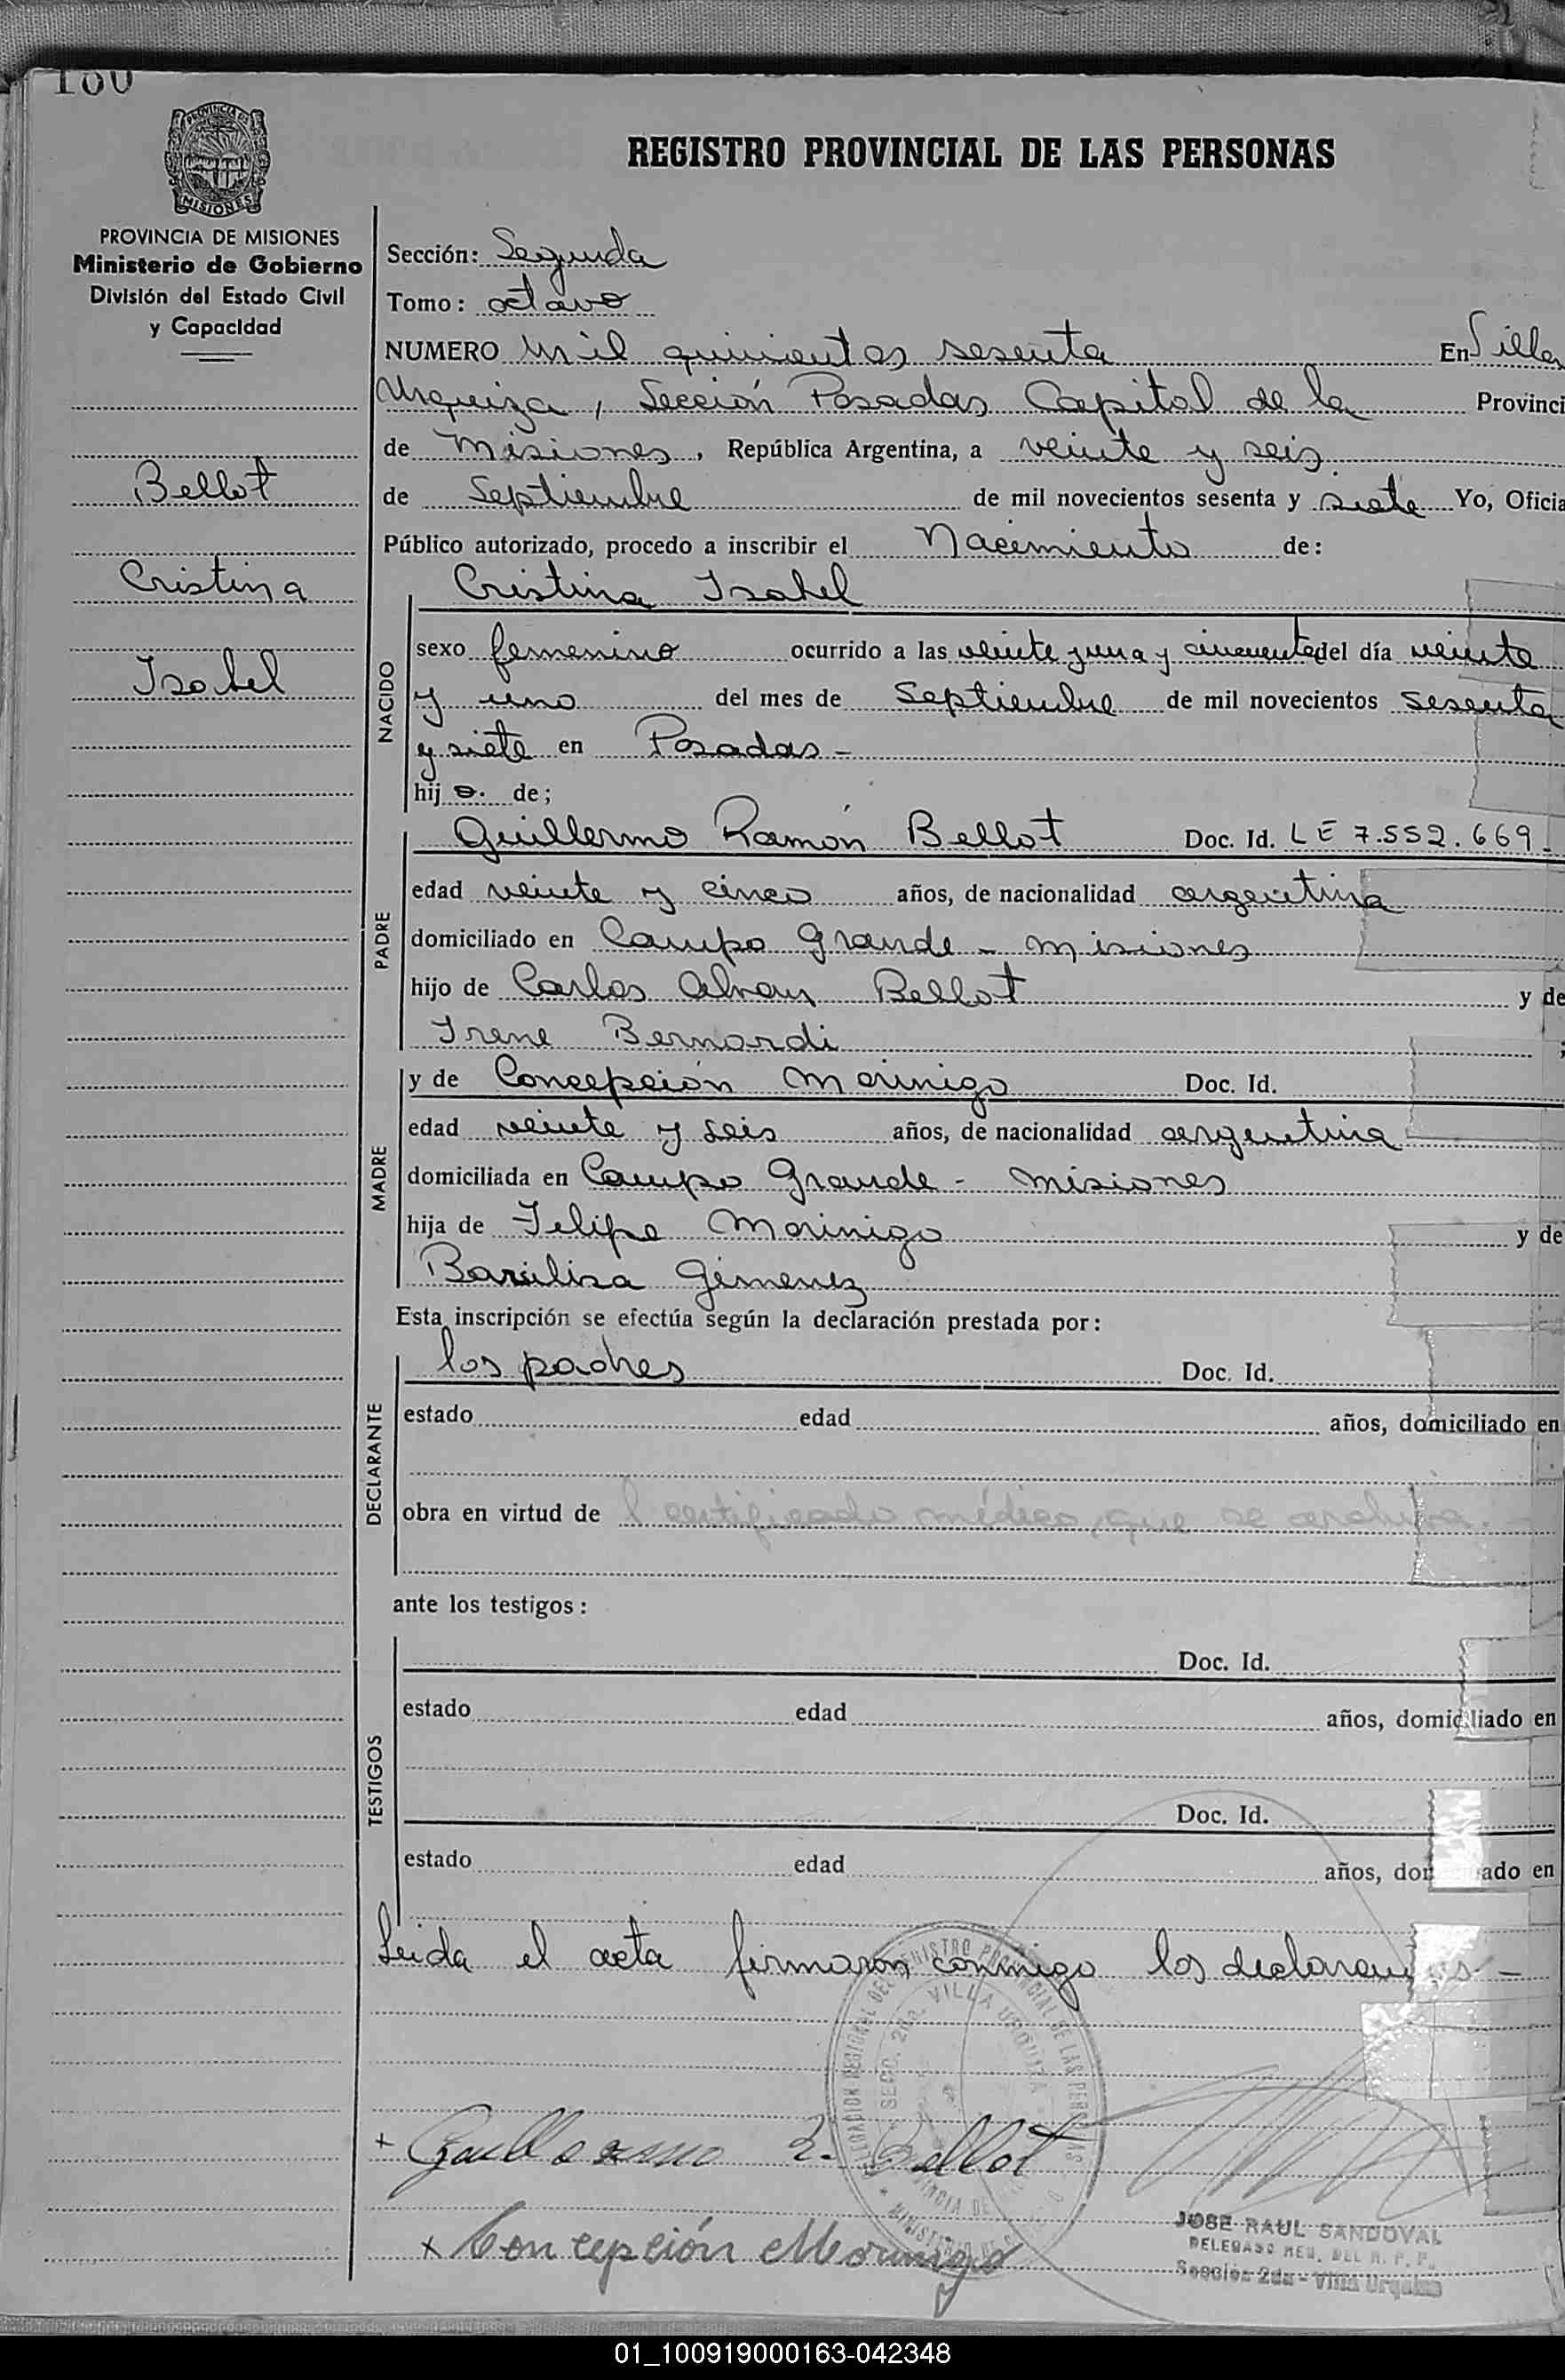 180
PROVINCIA DE
MISIONES
REGISTRO PROVINCIAL DE LAS PERSONAS
PROVINCIA DE MISIONES
Ministerio de Gobierno
División del Estado Civil
y Capacidad
Bellot
Cristina
Isabel
Sección: Segunda
Tomo: octavo
NUMERO Mil quinientos sesenta En Villa
Urquiza, Sección Posadas Capital de la Provinci
de Misiones, República Argentina, a veinte y seis
de Septiembre de mil novecientos sesenta y siete Yo, Oficia
Público autorizado, procedo a inscribir el Nacimiento de:
NACIDO
Cristina Isabel
sexo femenino ocurrido a las veinte y una y cincuenta del día veinte
y uno del mes de Septiembre de mil novecientos sesenta
y siete en Posadas-
hij a. de;
PADRE
Guillermo Ramón Bellot Doc. Id. LE 7.552.669-
edad veinte y cinco años, de nacionalidad argentina
domiciliado en Campo Grande - Misiones
hijo de Carlos Bellot y de
Irene Bernardi ;
MADRE
y de Concepción Morinigo Doc. Id.
edad veinte y seis años, de nacionalidad argentina
domiciliada en Campo Grande - Misiones
hija de Felipe Morinigo y de
Gimenez
Esta inscripción se efectúa según la declaración prestada por:
DECLARANTE
los padres Doc. Id.
estado edad años, domiciliado en
obra en virtud de l certificado médico, que se archiva.
ante los testigos:
TESTIGOS
Doc. Id.
estado edad años, domiciliado en
Doc. Id.
estado edad años, dom ado en
Leida el acta firmaron conmigo los declarantes-
DELEGACION REGIONAL DEL REGISTRO PROVINCIAL DE LAS PERSONAS
SECC. 2da. VILLA URQUIZA
+ Guillermo R. Bellot
x Concepción Morinigo
JOSE RAUL SANDOVAL
DELEGADO REG. DEL R. P. P.
Sección 2da - Villa Urquiza
01_100919000163-042348